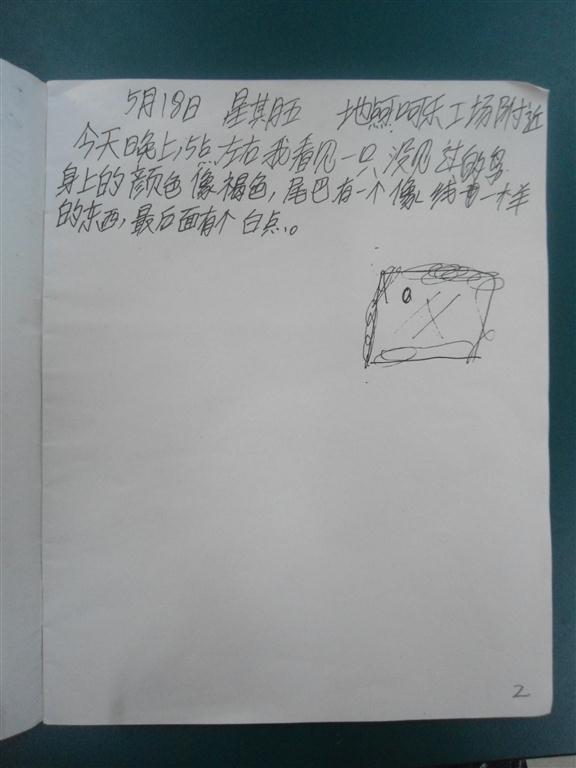 5月18日 星期五 地点:阿乐工场附近
今天晚上,5点左右我看见一只没见过的鸟
身上的颜色像褐色,尾巴有一个像线一样
的东西,最后面有个白点。
2